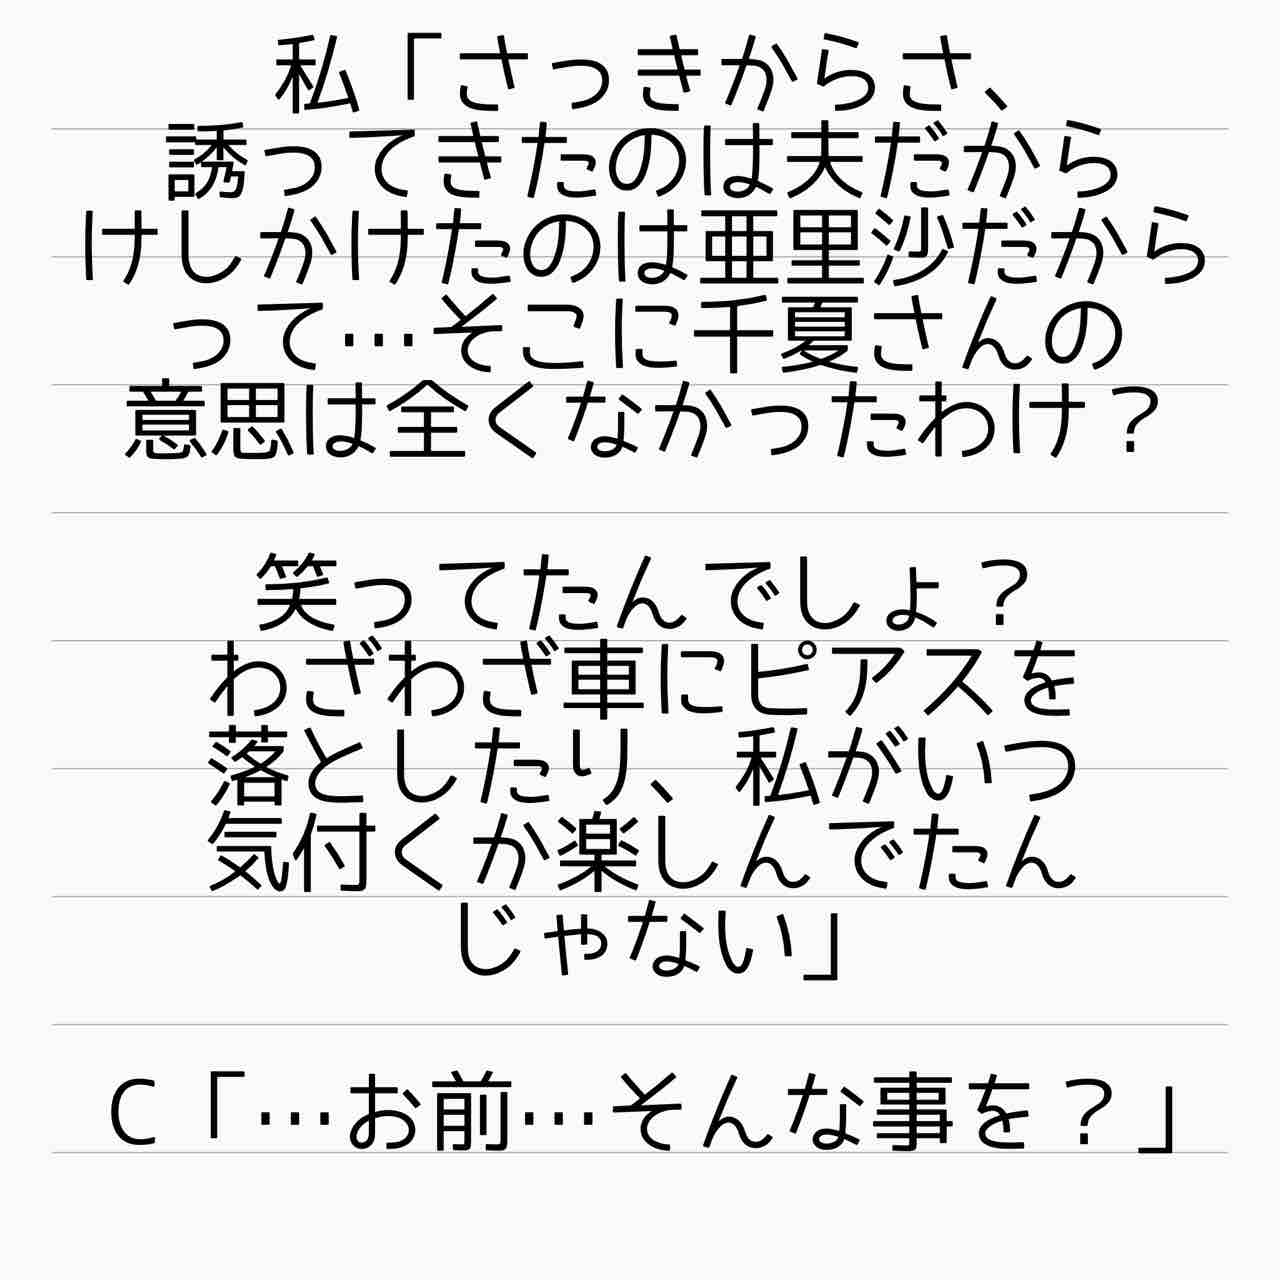 私「さっきからさ、
誘ってきたのは夫だから
けしかけたのは亜里沙だから
って…そこに千夏さんの
意思は全くなかったわけ？
笑ってたんでしょ？
わざわざ車にピアスを
落としたり、私がいつ
気付くか楽しんでたん
じゃない」
C「…お前…そんな事を？」